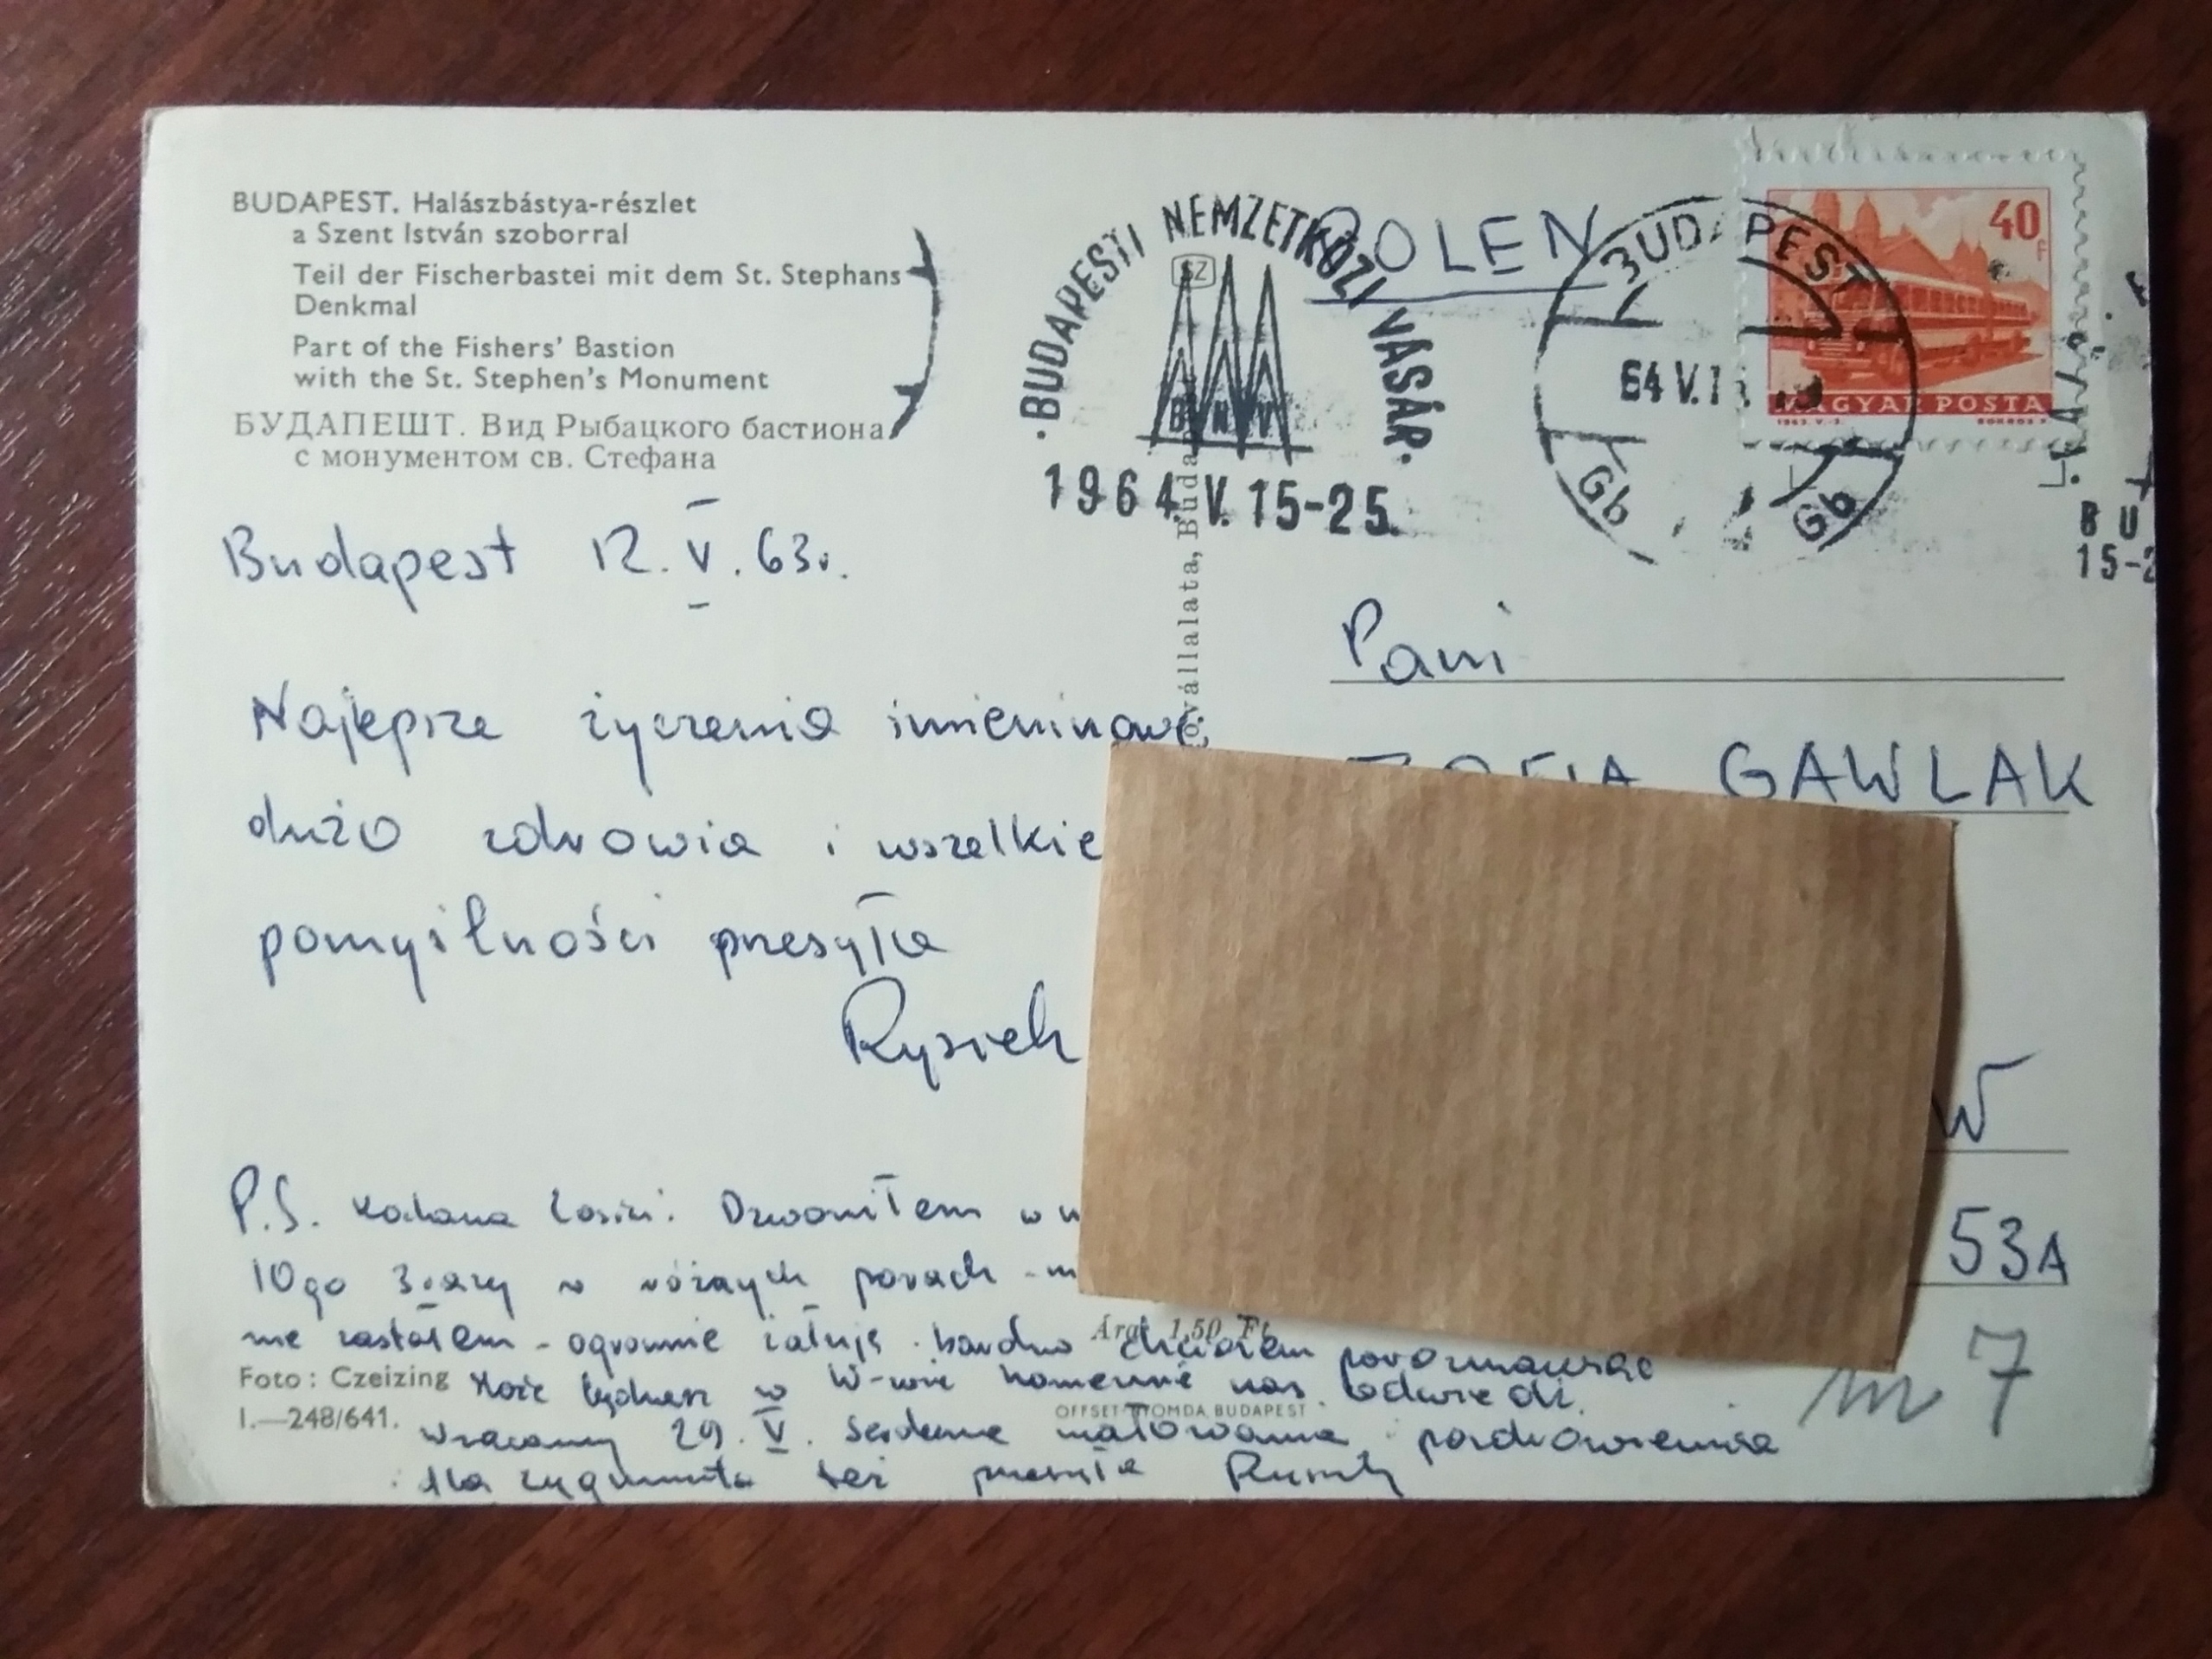 BUDAPEST. Halászbástya-részlet
a Szent István szoborral
Teil der Fischerbastei mit dem St. Stephans
Denkmal
Part of the Fishers' Bastion
with the St. Stephen's Monument
БУДАПЕШТ. Вид Рыбацкого бастиона
с монументом св. Стефана
Budapest 12. V. 63r.
Najlepsze życzenia imieninowe
dużo zdrowia i wszelkie
pomyślności przesyła
Rysiek
P.S. Kochana Zosiu. Dzwoniłem
10go 3 razy w różnych porach
nie zastałem - ogromnie żałuję bardzo chciałem
Może będziesz w W-wie koniecznie nas odwiedź.
Wracamy 29. V. Serdeczne pozdrowienia
dla Zygmunta też przesyła
Foto: Czeizing
I.—248/641.
Ára: 1,50 Ft
OFFSET-NYOMDA, BUDAPEST
vállalata, Buda
SZ
· BUDAPESTI NEMZETKÖZI VÁSÁR ·
BNV
1964. V. 15-25.
POLEN
BUDAPEST
64 V. 1
Gb Gb
40 F
MAGYAR POSTA
BU
15-2
Pani
ZOFIA GAWLAK
W
53A
m 7